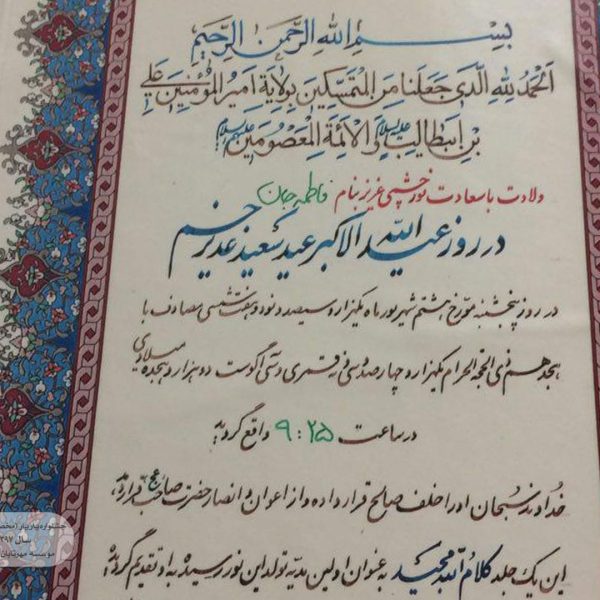 بسم الله الرحمن الرحیم
الحمد لله الذی جعلنا من المتمسکین بولایة امیر المؤمنین علی
بن ابیطالب علیه السلام و الائمة المعصومین علیهم السلام
ولادت با سعادت نورچشمی عزیز بنام فاطمه جان
در روز عید الله الاکبر عید سعید غدیر خم
در روز پنجشنبه مورخ هشتم شهریور ماه یکهزار و سیصد و نود و هفت شمسی مصادف با
هجدهم ذی الحجة الحرام یکهزار و چهارصد و سی و نه قمری و سی آگوست دو هزار و هجده میلادی
در ساعت ۹:۲۵ واقع گردید
خداوند سبحان او را خلف صالح قرار داده و از اعوان و انصار حضرت صاحب عج قرار دهد
این یک جلد کلام الله مجید به عنوان اولین هدیه تولد این نو رسیده به او تقدیم گردیده
جشنواره یار یار | محصو
سال ۱۳۹۷
موسسه مهرتابان